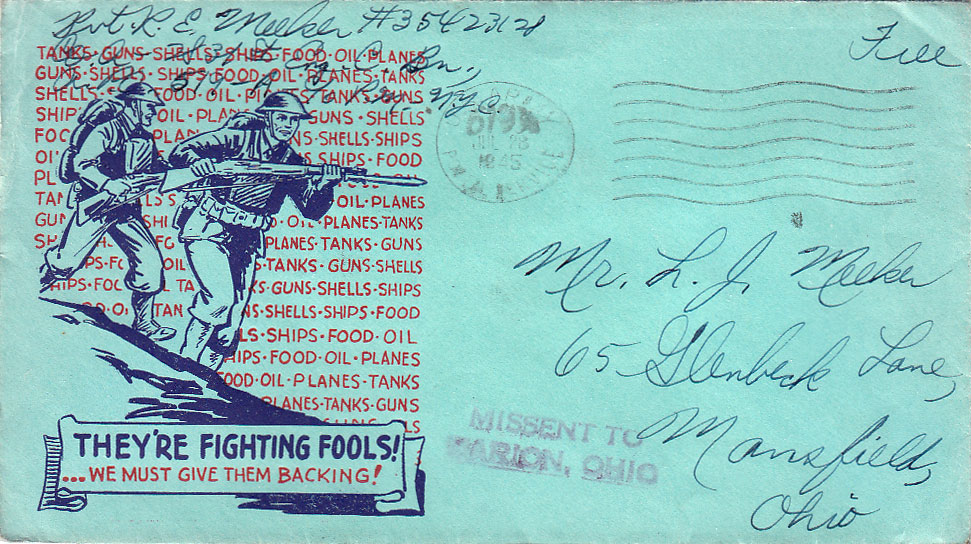 Pvt. R. E. Meeker #35423128
Co. A
Bn.,
N.Y.C.
Free
TANKS·GUNS·SHELLS·SHIPS·FOOD·OIL·PLANES
GUNS·SHELLS·SHIPS·FOOD·OIL·PLANES·TANKS
SHELLS FOOD·OIL·PLANTS·TANKS·GUNS
OIL·PLAN GUNS·SHELLS
FOO PLAN SHELLS·SHIPS
OI SHIPS·FOOD
PL
TAN OIL·PLANES
GU SHI OIL·PLANES·TANKS
SH FO PLANES·TANKS·GUNS
PS·FO OIL S·TANKS·GUNS·SHELLS
HIPS·FO TA KS·GUNS·SHELLS·SHIPS
D·O TAN NS·SHELLS·SHIPS·FOOD
LS·SHIPS·FOOD·OIL
HIPS·FOOD·OIL·PLANES
OOD·OIL·PLANES·TANKS
PLANES·TANKS·GUNS
LS
THEY'RE FIGHTING FOOLS!
...WE MUST GIVE THEM BACKING!
1945
SERVICE
Mr. L. J. Meeker
65 Glenbeck Lane,
Mansfield,
Ohio
MISSENT TO
MARION, OHIO